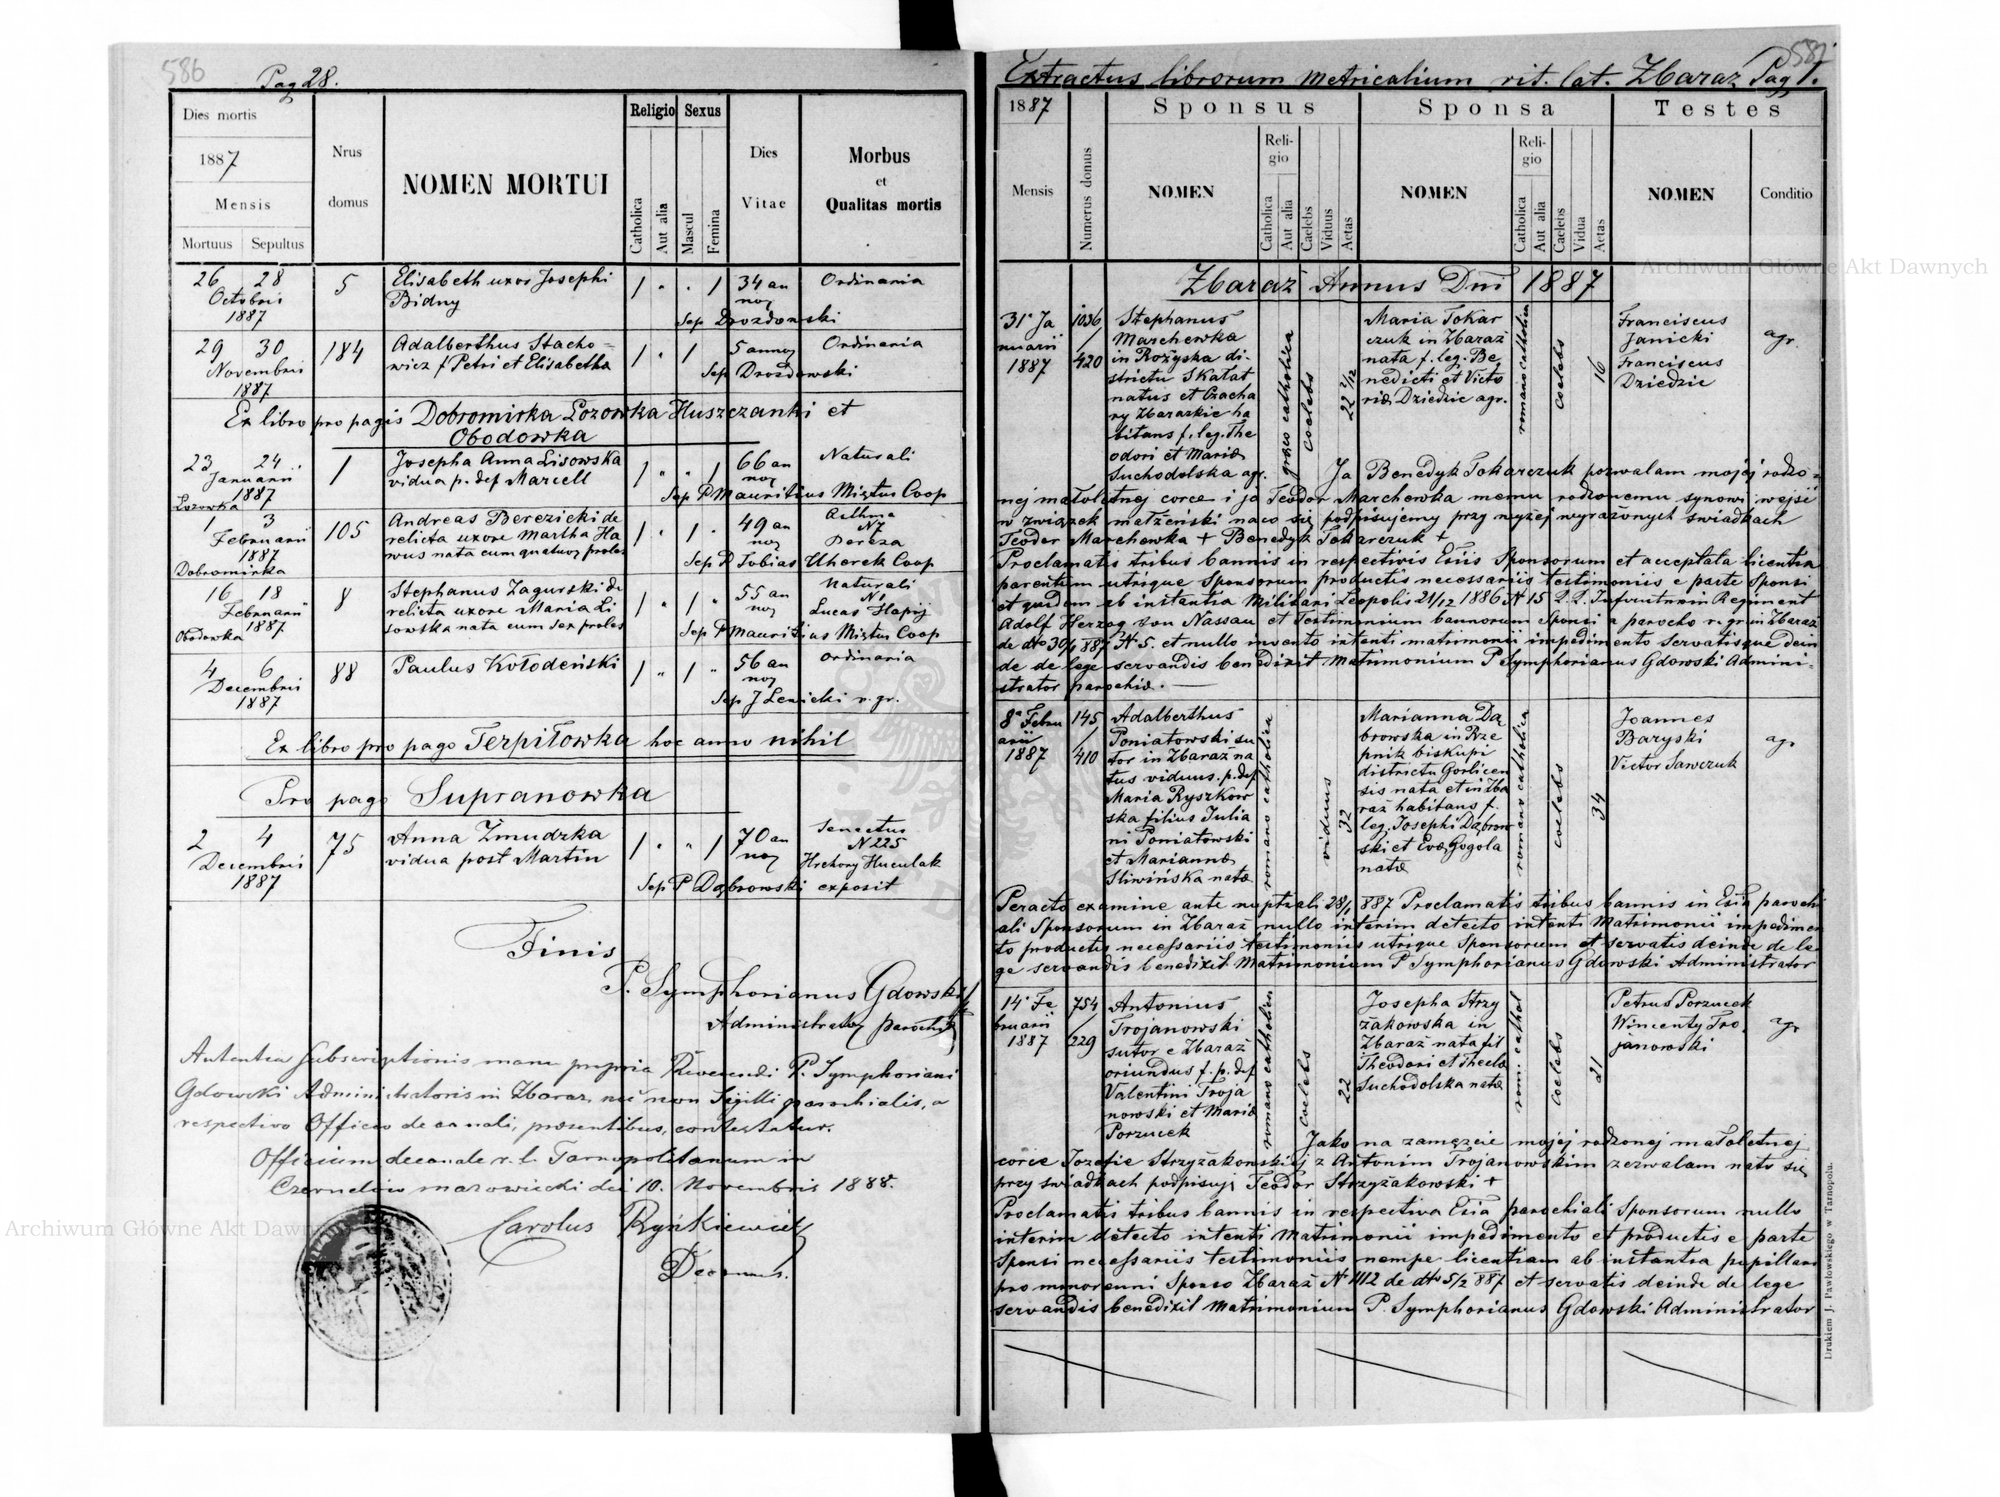 586
Pag 28.
Dies mortis
1887
Mensis
Mortuus Sepultus
Nrus domus
NOMEN MORTUI
Religio
Catholica
Aut alia
Sexus
Mascul
Femina
Dies Vitae
Morbus
et
Qualitas mortis
26 28
Octobris
1887
5
Elisabeth uxor Josephi
Bidny
1 " " 1
34 an
nor
Ordinaria
Sep Drozdowski
29 30
Novembris
1887
184
Adalberthus Stacho=
wicz f Petri et Elisabetha
1 " 1
5 annor
Ordinaria
Sep Drozdowski
Ex libro pro pagis Dobromirka Lozowka Huszczanki et
Obodowka
23 24
Januarii
1887
Lozowka
1
Josepha Anna Lisowska
vidua p. def Marcell
1 " " 1
66 an
nor
Naturali
Sep P Mauritius Mistus Coop
1 3
Februarii
1887
Dobromirka
105
Andreas Berezicki de
relicta uxore Martha Ha
wus nata cum quatuor proles
1 " 1 "
49 an
nor
Asthma
N7
Bereza
Sep P Tobias Uhorek Coop
16 18
Februarii
1887
Obodowka
8
Stephanus Zagurski de
relicta uxore Maria Li
sowska nata cum sex proles
1 " 1 "
55 an
nor
Naturali
N1
Lucas Hapij
Sep P Mauritius Mistus Coop
4 6
Decembris
1887
88
Paulus Kołodeński
1 " 1 "
56 an
nor
Ordinaria
Sep J Lewicki r. gr.
Ex libro pro pago Terpiłowka hoc anno nihil
Pro pago Supranowka
2 4
Decembris
1887
75
Anna Żmudzka
vidua post Martin
1 " " 1
70 an
nor
Senectus
N 225
Hrehory Huculak
Sep P Dąbrowski exposit
Finis
P. Symphorianus Gdowski
Administrator parochiæ
Autentia subscriptionis manu propria Reverendi P. Symphoriani
Gdowski Administratoris in Zbaraz, nec non Sigilli parochialis, a
respectivo Officio decanali, præsentibus, contestatur.
Officium decanale r. l. Tarnopolitanum in
Czernelów mazowiecki die 10. Novembris 1888.
Carolus Ryńkiewicz
Decanus.
Extractus librorum metricalium rit. lat. Zbaraz Pag 1.
587
1887
Mensis
Numerus domus
Sponsus
NOMEN
Reli-
gio
Catholica
Aut alia
Caelebs
Viduus
Aetas
Sponsa
NOMEN
Reli-
gio
Catholica
Aut alia
Caelebs
Vidua
Aetas
Testes
NOMEN
Conditio
Zbaraż Annus Dni 1887
31a Ja
nuarii
1887
1036
/
420
Stephanus
Marchewka
in Rożyska di-
strictu Skałat
natus et Czacha
ry Zbarazkie ha
bitans f. leg. The
odori et Mariæ
Suchodolska agr.
græco catholica
coelebs
22 2/12
Maria Tokar
czuk in Zbaraż
nata f. leg. Be
nedicti et Victo
riæ Dziedzic agr.
romano catholica
coelebs
16
Franciscus
Janicki
Franciscus
Dziedzic
agr.
Ja Benedyk Tokarczuk pozwalam mojej rodzo=
nej małoletnej corce i ja Teodor Marchewka memu rodzonemu synowi wejść
w związek małżeński na co się podpisujemy przy wyżej wyrażonych świadkach
Teodor Marchewka + Benedyk Tokarczuk +
Proclamatis tribus bannis in respectivis Esiis Sponsorum et acceptata licentia
parentum utrique Sponsorum productis necessariis testimoniis e parte Sponsi
et quidem ab instantia Militari Leopolis 21/12 1886 N 15 L.L. Infanterin Regiment
Adolf Herzog von Nassau et Testimonium bannorum Sponsi a parocho r. gr in Zbaraż
de dto 30/1 887 N 5. et nullo invento intenti matrimonii impedimento servatisque dein
de de lege servandis benedixit Matrimonium P Symphorianus Gdowski Admini-
strator parochiæ.
8a Febru
arii
1887
145
/
410
Adalberthus
Poniatowski su
tor in Zbaraż na
tus viduus. p. def
Maria Ryszkow
ska filius Julia
ni Poniatowski
et Mariannæ
Sliwińska natæ
romano catholica
viduus
32
Marianna Dą
browska in Rze
pnik biskupi
districtu Gorlicen
sis nata et in Zba
raż habitans f.
leg. Josephi Dąbrow
ski et Evæ Gogola
natæ
romano catholica
coelebs
34
Joannes
Baryski
Victor Sawczuk
agr
Peracto examine ante nuptiali 28/1 887 Proclamatis tribus bannis in Esia parochi
ali Sponsorum in Zbaraż nullo interim detecto intenti Matrimonii impedimen
to productis necessariis testimoniis utrique Sponsorum et servatis deinde de le
ge servandis benedixit Matrimonium P Symphorianus Gdowski Administrator
14a Fe
bruarii
1887
754
/
229
Antonius
Trojanowski
sutor e Zbaraż
oriundus f. p. def
Valentini Troja
nowski et Mariæ
Porzucek
romano catholica
coelebs
22
Josepha Strzy
żakowska in
Zbaraż nata fil
Theodori et Theclæ
Suchodolska natæ
rom. cathol
coelebs
21
Petrus Porzucek
Wincenty Tro
janowski
agr
Jako na zamęzcie mojej rodzonej małoletnej
corce Jozefie Strzyżakowskiej z Antonim Trojanowskim zezwalam nato się
przy swiadkach podpisuję Teodor Strzyżakowski +
Proclamatis tribus bannis in respectiva Esia parochiali Sponsorum nullo
interim detecto intenti Matrimonii impedimento et productis e parte
Sponsi necessariis testimoniis nempe licentiam ab instantia pupillari
pro minorenni Sponso Zbaraż N 1112 de dto 5/2 887 et servatis deinde de lege
servandis benedixit Matrimonium P. Symphorianus Gdowski Administrator
Drukiem J. Pawłowskiego w Tarnopolu.
Archiwum Główne Akt Dawnych
Archiwum Główne Akt Dawnych